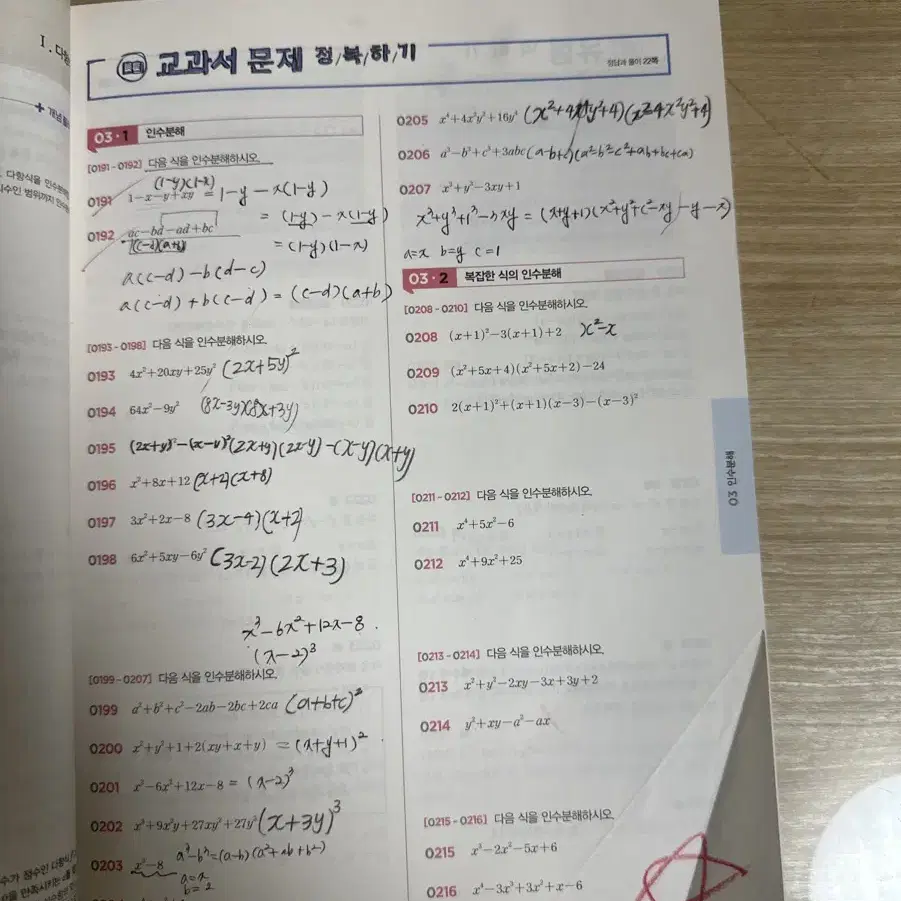 I. 다항
교과서 문제 정/복/하/기
정답과 풀이 22쪽
03·1 인수분해
[0191-0192] 다음 식을 인수분해하시오.
(1-y)(1-x)
0191 1-x-y+xy = 1-y-x(1-y)
= (1-y)-x(1-y)
0192 ac-bd-ad+bc
(c-d)(a+b)
= (1-y)(1-x)
a(c-d)-b(d-c)
a(c-d)+b(c-d) = (c-d)(a+b)
[0193-0198] 다음 식을 인수분해하시오.
0193 4x²+20xy+25y² (2x+5y)²
0194 64x²-9y² (8x-3y)(8x+3y)
0195 (2x+y)²-(x-y)² (2x+y)(2x-y)-(x-y)(x+y)
0196 x²+8x+12 (x+2)(x+8)
0197 3x²+2x-8 (3x-4)(x+2)
0198 6x²+5xy-6y² (3x-2)(2x+3)
x³-6x²+12x-8
(x-2)³
[0199-0207] 다음 식을 인수분해하시오.
0199 a²+b²+c²-2ab-2bc+2ca (a+b+c)²
0200 x²+y²+1+2(xy+x+y) = (x+y+1)²
0201 x³-6x²+12x-8 = (x-2)³
0202 x³+9x²y+27xy²+27y³ (x+3y)³
0203 x³-8 a³-b³=(a-b)(a²+ab+b²)
a=x
b=2
0205 x⁴+4x²y²+16y⁴
0206 a³-b³+c³+3abc (a-b+c)(a²-b²-c²+ab+bc+ca)
0207 x³+y³-3xy+1
x³+y³+1³-3xy = (x+y+1)(x²+y²+c²-xy-y-x)
a=x b=y c=1
03·2 복잡한 식의 인수분해
[0208-0210] 다음 식을 인수분해하시오.
0208 (x+1)²-3(x+1)+2 x²-x
0209 (x²+5x+4)(x²+5x+2)-24
0210 2(x+1)²+(x+1)(x-3)-(x-3)²
[0211-0212] 다음 식을 인수분해하시오.
0211 x⁴+5x²-6
0212 x⁴+9x²+25
[0213-0214] 다음 식을 인수분해하시오.
0213 x²+y²-2xy-3x+3y+2
0214 y²+xy-a²-ax
[0215-0216] 다음 식을 인수분해하시오.
0215 x³-2x²-5x+6
0216 x⁴-3x³+3x²+x-6
03 인수분해